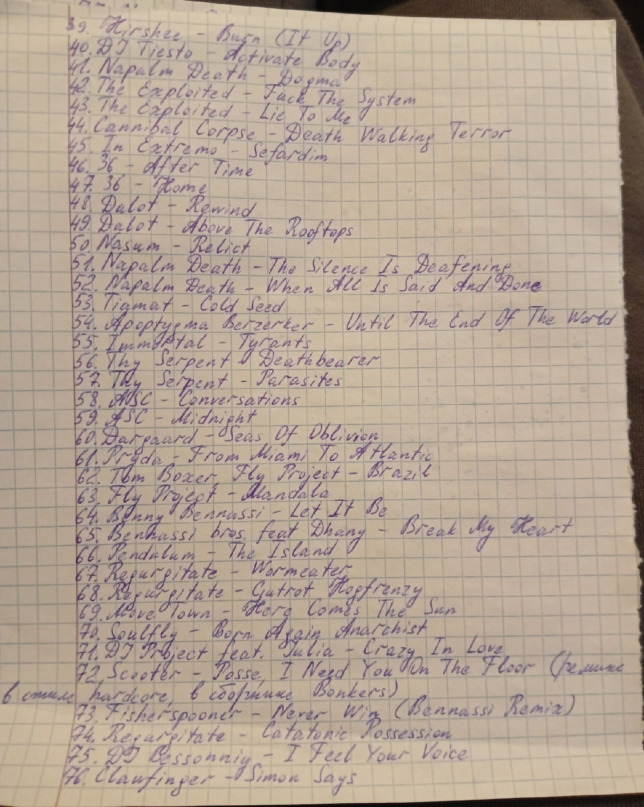 39. Hirshee - Burn (It Up)
40. DJ Tiesto - Activate Body
41. Napalm Death - Dogma
42. The Exploited - Fuck The System
43. The Exploited - Lie To Me
44. Cannibal Corpse - Death Walking Terror
45. In Extremo - Sefardim
46. 36 - After Time
47. 36 - Home
48. Dalot - Rewind
49. Dalot - Above The Rooftops
50. Nasum - Relict
51. Napalm Death - The Silence Is Deafening
52. Napalm Death - When All Is Said And Done
53. Tiamat - Cold Seed
54. Apoptygma Berzerker - Until The End Of The World
55. Immortal - Tyrants
56. Thy Serpent - Deathbearer
57. Thy Serpent - Parasites
58. ASC - Conversations
59. ASC - Midnight
60. Dargaard - Seas Of Oblivion
61. Pryda - From Miami To Atlantic
62. Tom Boxer, Fly Project - Brazil
63. Fly Project - Mandala
64. Benny Bennassi - Let It Be
65. Bennassi bros. feat Dhany - Break My Heart
66. Pendulum - The Island
67. Regurgitate - Wormeater
68. Regurgitate - Gutrot Hogfrenzy
69. Move Town - Here Comes The Sun
70. Soulfly - Born Again Anarchist
71. DJ Project feat. Julia - Crazy In Love
72. Scooter - Posse, I Need You On The Floor (ремикс
в стиле hardcore, в сборнике Bonkers)
73. Fisherspooner - Never Win (Bennassi Remix)
74. Regurgitate - Catatonic Possession
75. DJ Bessonniy - I Feel Your Voice
76. Clawfinger - Simon Says